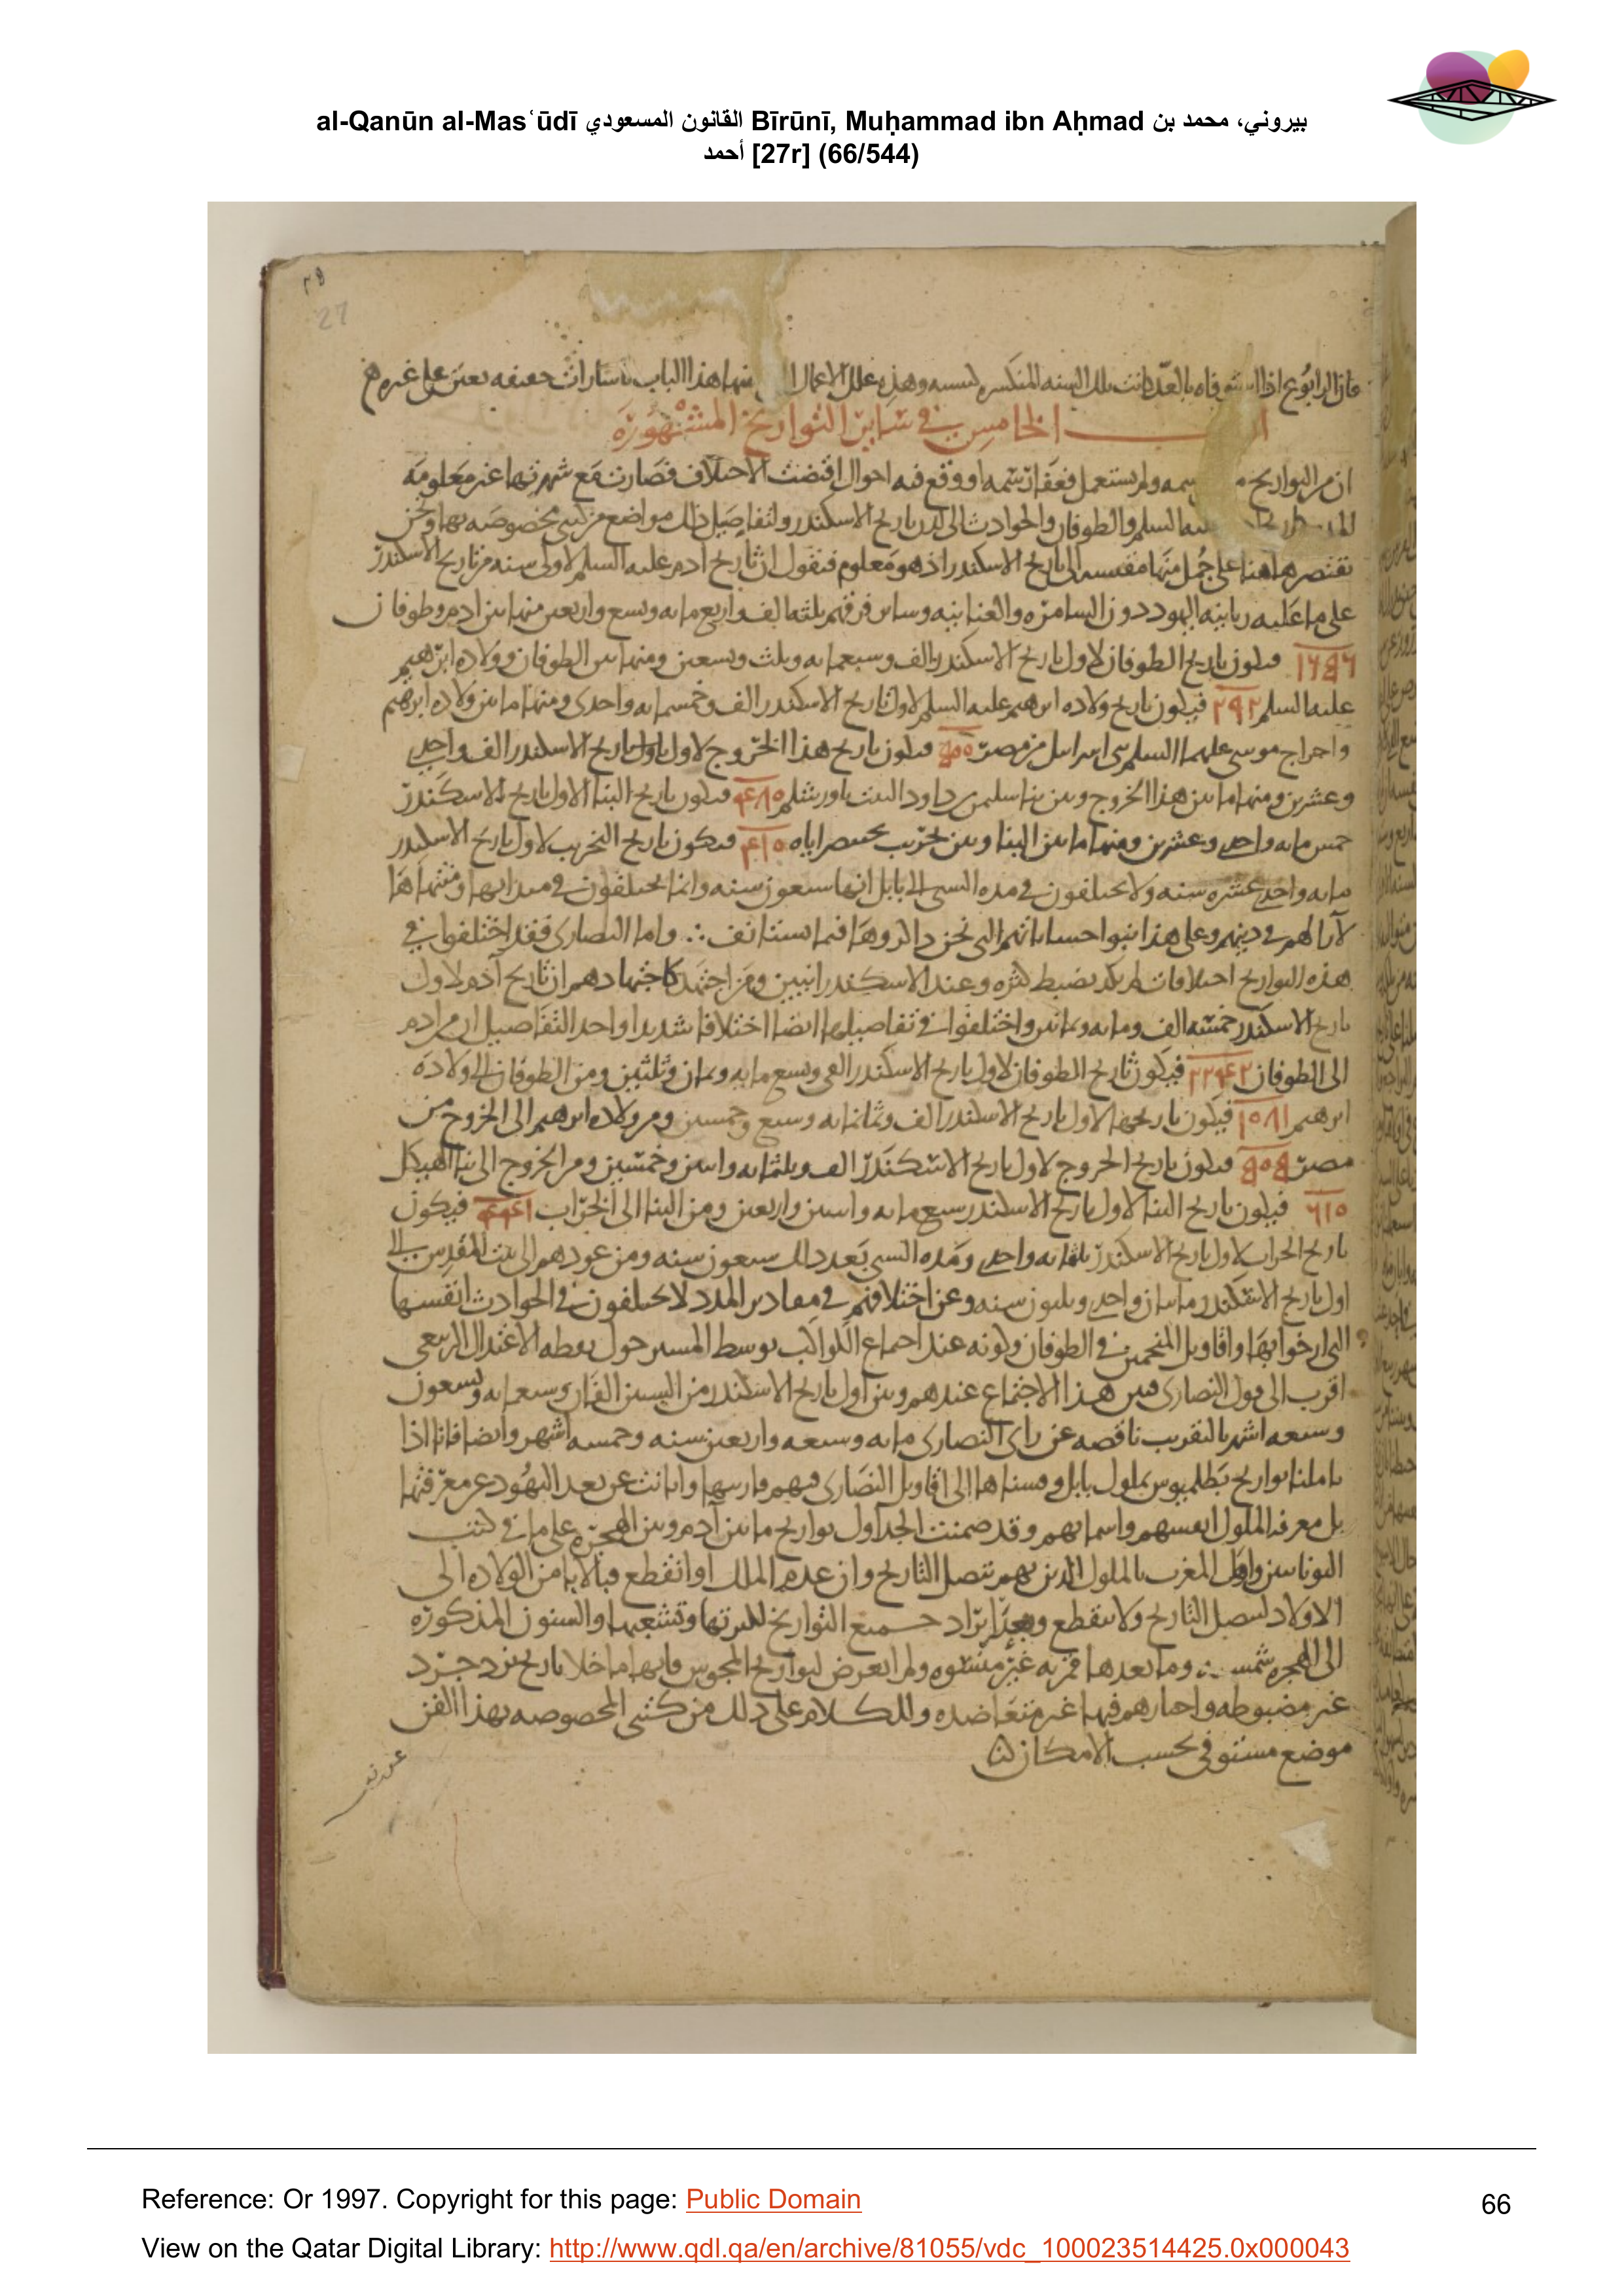 al-Qanūn al-Masʿūdī القانون المسعودي Bīrūnī, Muḥammad ibn Aḥmad بيروني، محمد بن
أحمد [27r] (66/544)
27
الخامس في سائر التواريخ المشهورة
ان من التواريخ ولم يستعمل او وقع فيه احوال اقتضت الاختلاف فصارت مع شهرتها غير معلومه
السلم والطوفان والحوادث الى لدن تاريخ الاسكندر ولتفاصيل ذلك مواضع من كتبي مخصوصه بها ونحن
نقتصر هاهنا على جمل منها مقيسه الى تاريخ الاسكندر اذ هو معلوم فنقول ان تاريخ ادم عليه السلم لاولى سنه من تاريخ الاسكندر
على ما عليه ربانيه اليهود دون السامره والعنانيه وسائر فرقهم ثلثه الف واربع مايه وتسع واربعين منها بين ادم وطوفان
١٦٥٦ فيكون تاريخ الطوفان لاول تاريخ الاسكندر الف وسبعمايه وثلث وتسعين ومنها بين الطوفان وولاده ابرهيم
عليه السلم ٢٩٢ فيكون تاريخ ولاده ابرهيم عليه السلم لاول تاريخ الاسكندر الف وخمسمايه واحدى ومنها ما بين ولاده ابرهيم
واخراج موسى عليهما السلم بنى اسرائيل من مصر ٥٠٠ فيكون تاريخ هذا الخروج لاول تاريخ الاسكندر الف واحدى
وعشرين ومنها ما بين هذا الخروج وبين بنا سليمن بن داود البيت باورشلم ٤٨٠ فيكون تاريخ البنا لاول تاريخ الاسكندر
خمس مايه واحدى وعشرين ومنها ما بين البنا وبين تخريب بختنصر اياه ٤١٠ فيكون تاريخ التخريب لاول تاريخ الاسكندر
مايه واحدى عشره سنه ولا يختلفون في مده السبي الى بابل انها سبعون سنه وانما يختلفون في مبدايها ومنتهاها
لآرا لهم في دينهم وعلى هذا بنوا حساباتهم التي نحن ذاكروها فيما نستانف ∴ واما النصارى فقد اختلفوا في
هذه التواريخ اختلافات لم يكد يضبط لكثره وعند الاسكندرانيين ومن اجتهد كاجتهادهم ان تاريخ آدم لاول
تاريخ الاسكندر خمسه الف ومايه وثمانين واختلفوا في تفاصيلها ايضا اختلافا شديدا واحد التفاصيل ان من ادم
الى الطوفان ٢٢٤٢ فيكون تاريخ الطوفان لاول تاريخ الاسكندر الفي وتسع مايه وثمان وثلثين ومن الطوفان الى ولاده
ابرهيم ١٠٨١ فيكون تاريخها لاول تاريخ الاسكندر الف وثمانمايه وسبع وخمسين ومن ولاده ابرهيم الى الخروج من
مصر ٥٠٥ فيكون تاريخ الخروج لاول تاريخ الاسكندر الف وثلثمايه واثنين وخمسين ومن الخروج الى بنا الهيكل
٦١٠ فيكون تاريخ البنا لاول تاريخ الاسكندر سبع مايه واثنين واربعين ومن البنا الى الخراب ٤٤١ فيكون
تاريخ الخراب لاول تاريخ الاسكندر ثلثمايه واحدى ومده السبي بعد ذلك سبعون سنه ومن عودهم الى بيت المقدس الى
اول تاريخ الاسكندر مايتان واحدى وثلثون سنه وعن اختلافهم في مقادير المدد لا يختلفون في الحوادث انفسها
التي ارخوا بها واقاويل المنجمين في الطوفان وكونه عند اجتماع الكواكب بوسط المسير حول نقطه الاعتدال الربيعي
اقرب الى قول النصارى فبين هذا الاجتماع عندهم وبين اول تاريخ الاسكندر من السنين الفان وسبعمايه وتسعون
وسبعه اشهر بالتقريب ناقصه عن راى النصارى مايه وسبعه واربعين سنه وخمسه اشهر وايضا فانا اذا
تاملنا تواريخ بطلميوس بملوك بابل وقسناها الى اقاويل النصارى فيهم قاربتها وابانت عن بعد اليهود عن معرفتها
بل معرفه الملوك انفسهم واسمايهم وقد ضمنت الجداول تواريخ ما بين آدم وبين الهجره على ما في كتب
اليونانيين واهل المغرب بالملوك الذين بهم يتصل التاريخ وان عدم الملك او انقطع فبالابا من الولاده الى
الاولاد ليتصل التاريخ ولا ينقطع ايراد جميع التواريخ لكثرتها وتشعبها والسنون المذكوره
الى الهجره شمسيه وما بعدها قمريه غير مستوه ولم اتعرض لتواريخ المجوس فانها ما خلا تاريخ يزدجرد
غير مضبوطه واخبارهم فيها غير متعاضده وللكلام على ذلك من كتبي المخصوصه بهذا الفن
موضع مستوفى بحسب الامكان
Reference: Or 1997. Copyright for this page: Public Domain
66
View on the Qatar Digital Library: http://www.qdl.qa/en/archive/81055/vdc_100023514425.0x000043